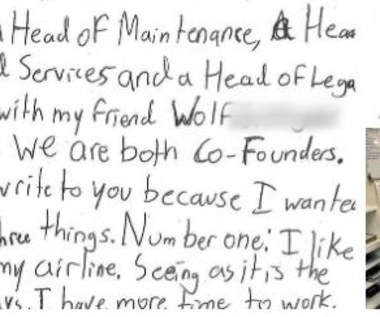 Head of Maintenance, A Hea
Services and a Head of Lega
with my friend Wolf
We are both Co-Founders.
write to you because I wante
hree things. Number one: I like
my airline. Seeing as it is the
ys. I have more time to work.